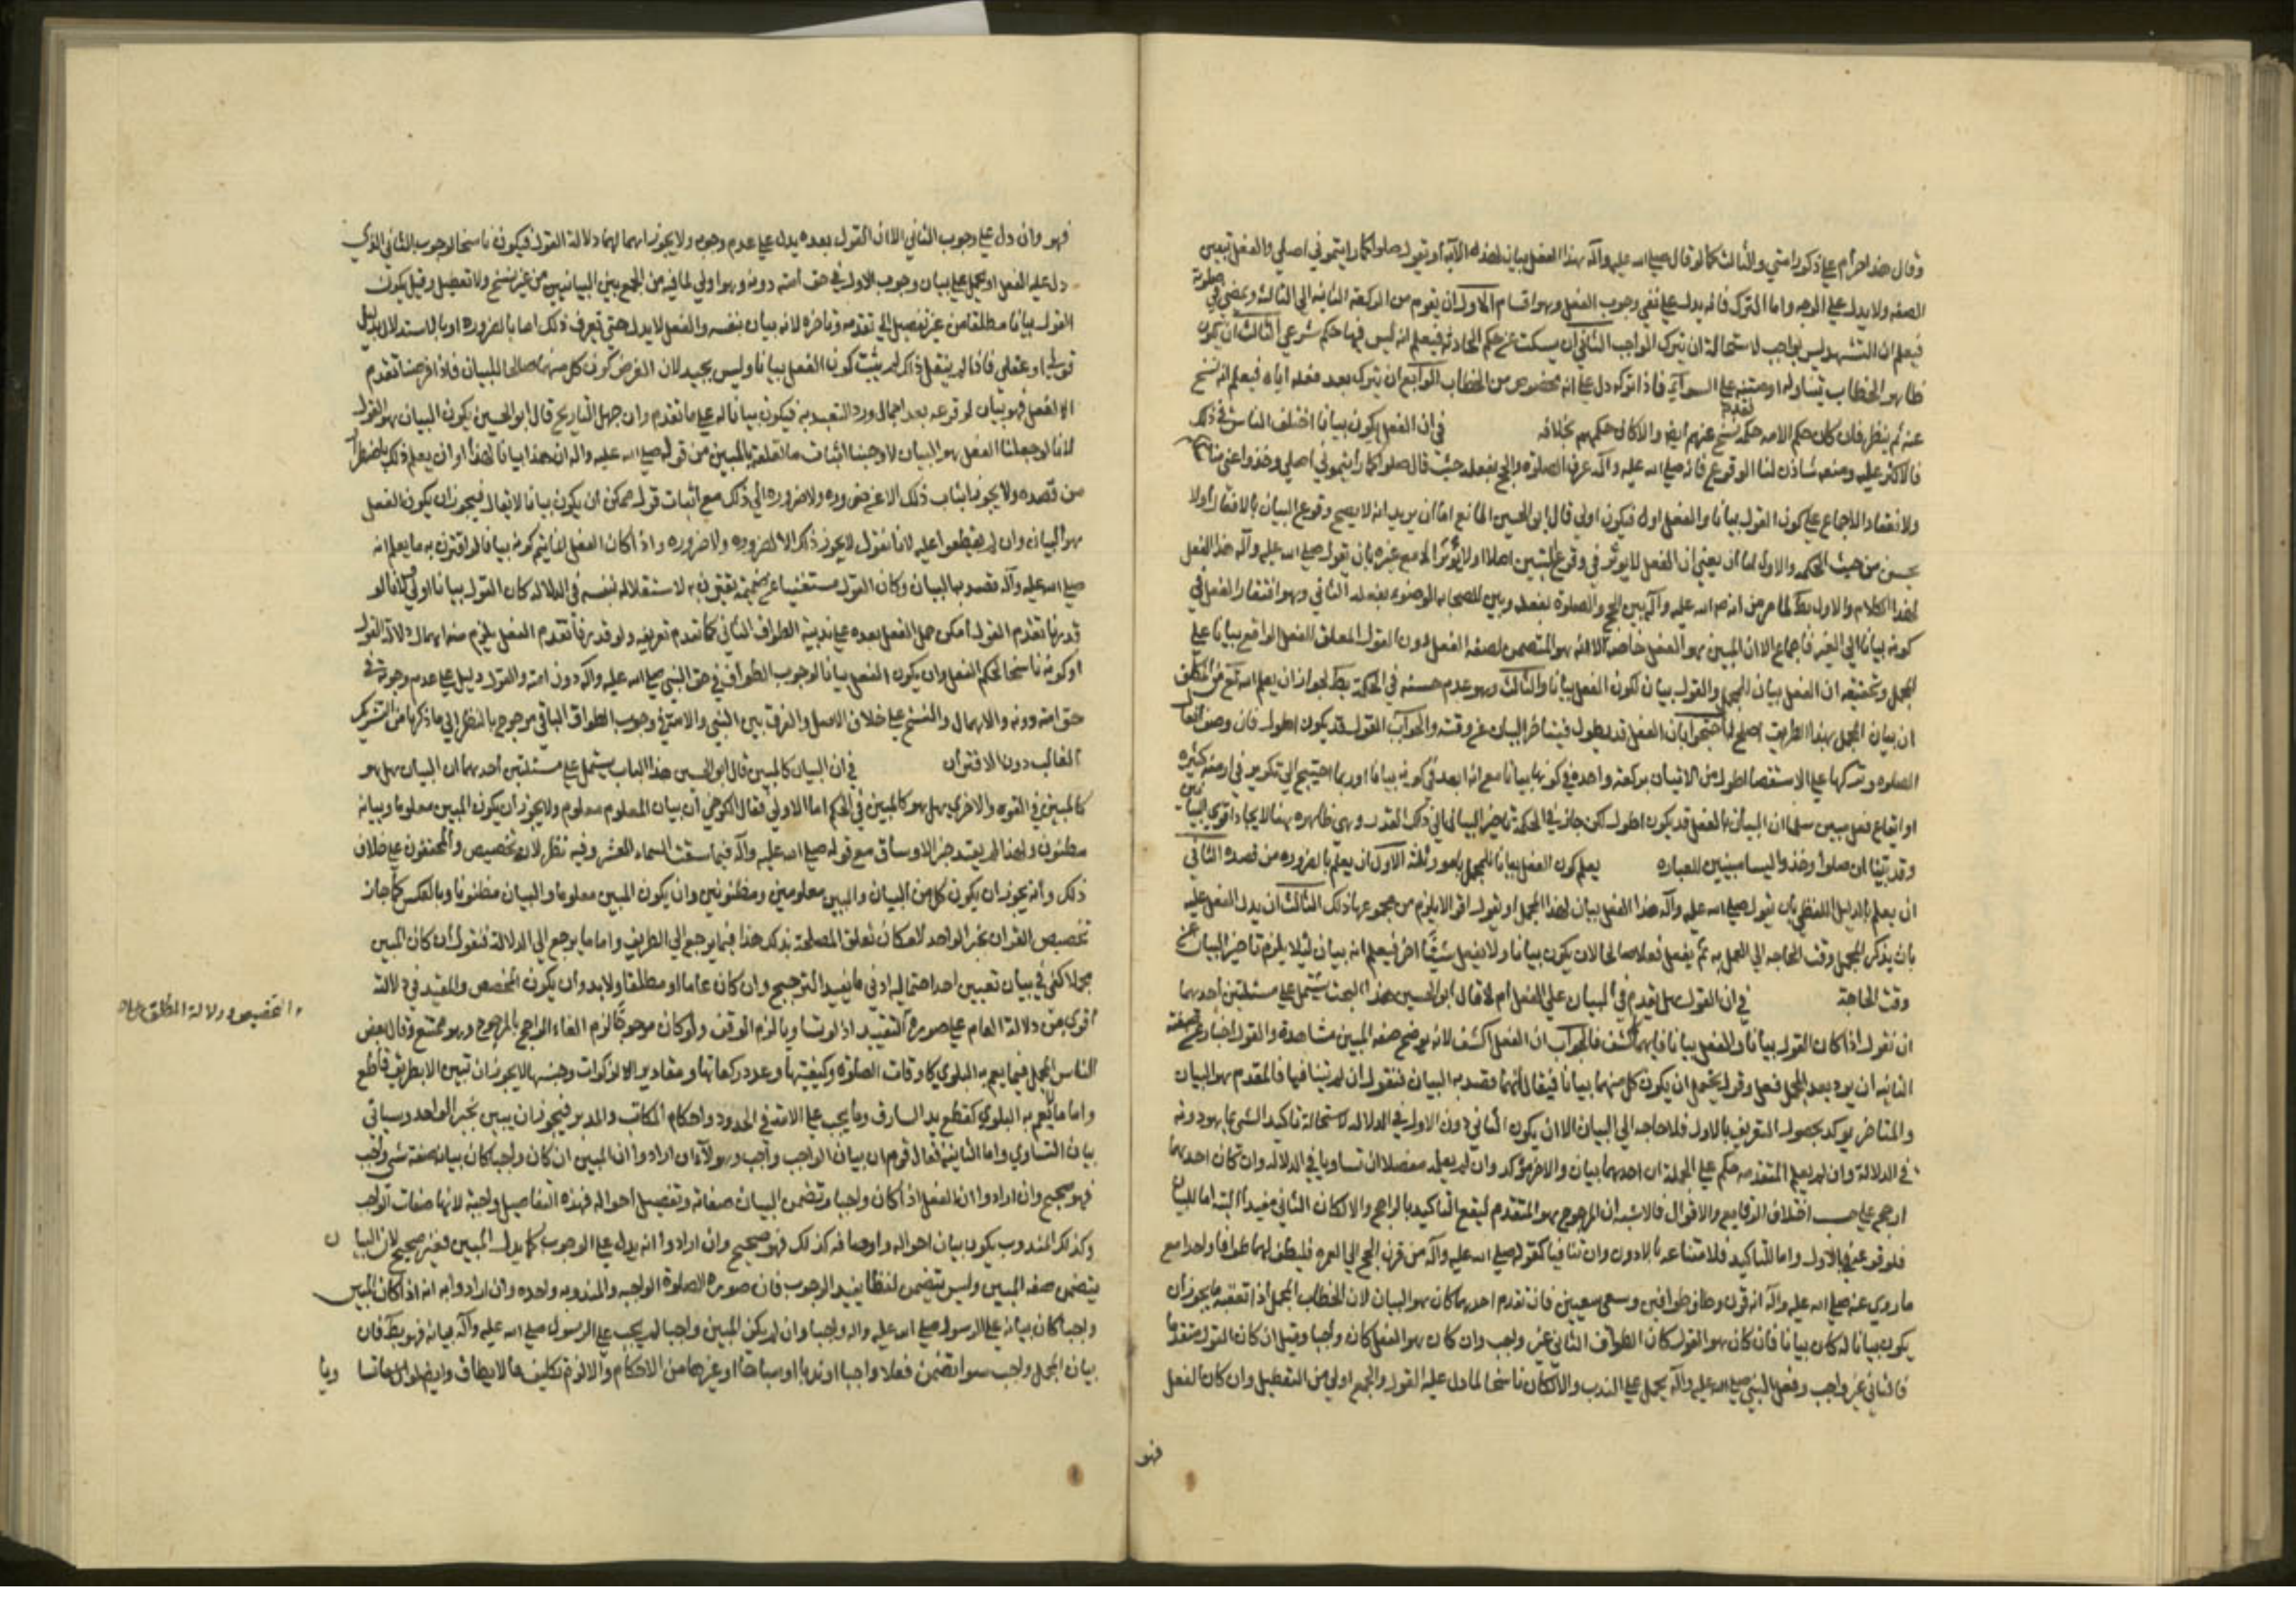 وقال هذا حرام على ذكور امتي والثالث كما لو قال صلى الله عليه وآله هذا الفعل بيان لهذه الآية او يقول صلوا كما رايتموني اصلي والفعل تبيين
الصفه ولا يدل على الوجه واما الترك فانه يدل على نفي وجوب الفعل وهو اقسام الاول ان يقوم من الركعة الثانية الى الثالثة ويمضي في صلوته
فيعلم ان التشهد ليس بواجب لاستحالة ان يترك الواجب الثاني ان يسكت عن حكم الحادثة فيعلم انه ليس فيها حكم شرعي الثالث ان يكون
ظاهر الخطاب يتناوله وامته على السواء فاذا تركه دل على انه مخصوص من الخطاب الرابع ان يترك بعد فعله اياه فيعلم انه نسخ
عنه ثم ينظر فان كان حكم الامه حكمه نسخ عنهم ايضا والا كان حكمهم بخلافه في ان الفعل يكون بيانا اختلف الناس في ذلك
فالاكثر عليه ومنعه شاذ لنا الوقوع فانه صلى الله عليه وآله عرف الصلوة والحج بفعله حيث قال صلوا كما رأيتموني اصلي وخذوا عني مناسككم
ولانعقاد الاجماع على كون القول بيانا والفعل ادل فيكون اولى قال ابو الحسين المانع اما ان يريد انه لا يصح وقوع البيان بالافعال او لا
يحسن من حيث الحكمه والاول اما ان يعني ان الفعل لا يوثر في وقوع التبيين اصلا او لا يؤثر الا مع غيره بان يقول صلى الله عليه وآله هذا الفعل
لهذا الكلام والاول بط لما مر من انه صلى الله عليه وآله بين الحج والصلوة بفعله وبين للصحابه الوضوء بفعله الثاني وهو افتقار الفعل في
كونه بيانا الى الغير فاجماع الا ان المبين هو الفعل خاصة لانه هو المتضمن لصفه الفعل دون القول المعلق للفعل الواقع بيانا على
المجمل وتحقيقه ان الفعل بيان المجمل والقول بيان لكون الفعل بيانا والثالث وهو عدم حسنه في الحكمة بط لجواز ان يعلم الله تع من المكلف
ان بيان المجمل بهذا الطريق اصلح له احتجوا بان الفعل قد يطول فيتاخر البيان عن وقته والجواب القول قد يكون اطول فان وصف افعال
الصلوه وتروكها على الاستقصا اطول من الاتيان بركعة واحده في كونها بيانا مع انه ابعد في كونه بيانا وربما احتيج الى تكرير في ازمنه كثيره
او ايقاع فعل يبين سلمنا ان البيان بالفعل قد يكون اطول لكن جاز في الحكمة تاخير البيان الى ذلك القدر وهي ظاهره هنا لايجاد اقوى البيانين
وقد بينا ان صلوا وخذوا ليسا مبينين للعباره يعلم كون الفعل بيانا للمجمل بامور ثلثة الاول ان يعلم بالضروره من قصده الثاني
ان يعلم بالدليل اللفظي بان يقول صلى الله عليه وآله هذا الفعل بيان لهذا المجمل او يقول اقوالا يلزم من مجموعها ذلك الثالث ان يدل الفعل عليه
بان يذكر المجمل وقت الحاجه الى العمل به ثم يفعل فعلا صالحا لان يكون بيانا ولا يفعل شيئا اخر فيعلم انه بيان لئلا يلزم تاخير البيان عن
وقت الحاجة في ان القول هل يقدم في البيان على الفعل ام لا قال ابو الحسين هذا البحث يشتمل على مسئلتين احدهما
ان نقول اذا كان القول بيانا والفعل بيانا فايهما اكشف فالجواب ان الفعل اكشف لانه يوضح صفه المبين مشاهدة والقول اخبار عن صفته
الثانيه ان يرد بعد المجمل فعل وقول يحتمل ان يكون كل منهما بيانا فيقال ايهما قصد به البيان فنقول ان لم يتنافيا فالمقدم هو البيان
والمتاخر يوكد بحصول التعريف بالاول فلا حاجه الى البيان الا ان يكون الثاني دون الاول في الدلاله لاستحالة تاكيد الشئ بما هو دونه
في الدلالة وان لم يعلم المتقدم حكم على الجملة ان احدهما بيان والاخر مؤكد وان لم يعلم مفصلا ان تساويا في الدلاله وان كان احدهما
ارجح على حسب اختلاف الوقايع والاقوال فالاشبه ان المرجوح هو المتقدم ليقع التاكيد بالراجح والا لكان الثاني غير مفيد البتة اما للبيان
فلوقوعه في الاول واما للتاكيد فلامتناعه بالادون وان تنافيا كقوله صلى الله عليه وآله من قرن الحج الى العمره فليطف لهما طوافا واحدا مع
ما روي عنه صلى الله عليه وآله انه قرن وطاف طوافين وسعى سعيين فان تقدم احدهما كان هو البيان لان الخطاب المجمل اذا تعقبه ما يجوز ان
يكون بيانا له كان بيانا فان كان هو القول كان الطواف الثاني غير واجب وان كان هو الفعل كان واجبا وقيل ان كان القول متقدما
فالثاني غير واجب وفعل النبي صلى الله عليه وآله يحمل على الندب والا لكان ناسخا لما دل عليه القول والجمع اولى من التعطيل وان كان الفعل
فهو
فهو وان دل على وجوب الثاني الا ان القول بعده يدل على عدم وجوبه ولا يجوز اهمالهما دلالة القول فيكون ناسخا لوجوب الثاني الذي
دل عليه الفعل او يحمل على بيان وجوب الاول في حق امته دونه وهو اولى لما فيه من الجمع بين البيانين من غير نسخ ولا تعطيل وقيل يكون
القول بيانا مطلقا من غير تفصيل الى تقدمه وتاخره لانه بيان بنفسه والفعل لا يدل حتى يعرف ذلك اما بالضروره او بالاستدلال بدليل
قولي او عقلي فاذا لم ينقل ذلك لم يثبت كون الفعل بيانا وليس بجيد لان الفرض كون كل منهما صالحا للبيان فاذا فرضنا تقدم
الفعل فهو بيان لوقوعه بعد اجمال ورد التعبد به فيكون بيانا له على ما تقدم وان جهل التاريخ قال ابو الحسين يكون البيان هو القول
لانا لو جعلنا الفعل هو البيان لاوجبنا اثبات ما تعلقه بالمبين من قوله صلى الله عليه واله ان هذا بيانا لهذا او ان يعلم ذلك باضطرار
من قصده ولا يجوز اثبات ذلك الا عن ضروره ولا ضروره الى ذلك مع اثبات قول ممكن ان يكون بيانا لا يقال فيجوز ان يكون الفعل
هو البيان وان لم يقطعوا عليه لانا نقول لا يجوز ذلك الا لضروره ولا ضروره واذا كان الفعل انما يتم كونه بيانا لو اقترن به ما يعلم انه
صلى الله عليه وآله قصد به البيان وكان القول مستغنيا عن ضميمة يقترن به لاستقلاله بنفسه في الدلاله كان القول بيانا اولى فانا لو
قدرنا تقدم القول امكن حمل الفعل بعده على ندبية الطواف الثاني كما تقدم تعريفه ولو قدرنا تقدم الفعل يلزم منه اهمال دلالة القول
او كونه ناسخا لحكم الفعل وان يكون الفعل بيانا لوجوب الطواف في حق النبي صلى الله عليه وآله دون امته والقول دليل على عدم وجوبه في
حق امته دونه والاهمال والنسخ على خلاف الاصل والفرق بين النبي والامة في وجوب الطواف الثاني مرجوح بالنظر الى ما ذكرنا من التشريك
الغالب دون الافتراق في ان البيان كالمبين قال ابو الحسين هذا الباب يشتمل على مسئلتين احدهما ان البيان هل هو
كالمبين في القوه والاخرى هل هو كالمبين في الحكم اما الاولى فقال الكرخي ان بيان المعلوم معلوم ولا يجوز ان يكون المبين معلوما وبيانه
مظنون ولهذا لم يقبل خبر الاوساق مع قوله صلى الله عليه وآله فيما سقت السماء العشر وفيه نظر لانه تخصيص والمحققون على خلاف
ذلك وانه يجوز ان يكون كل من البيان والمبين معلومين ومظنونين وان يكون المبين معلوما والبيان مظنونا وبالعكس كما جاز
تخصيص القران بخبر الواحد لامكان تعلق المصلحة بذلك هذا فيما يرجع الى الطريق واما ما يرجع الى الدلالة فنقول ان كان المبين
مجملا كفى في بيان تعيين احد احتماليه ادنى ما يفيد الترجيح وان كان عاما او مطلقا ولابد وان يكون المخصص والمقيد في دلالته
اقوى من دلالة العام على صورة التقييد اذ لو تساويا لزم الوقف ولو كان مرجوحا لزم الغاء الراجح بالمرجوح وهو ممتنع وقال بعض
الناس المجمل فيما يعم به البلوى كاوقات الصلوة وكيفيتها وعدد ركعاتها ومقادير الزكوات وجنسها لا يجوز ان تبين الا بطريق قاطع
واما ما لا يعم به البلوى كقطع يد السارق وما يجب على الامة في الحدود واحكام المكاتب والمدبر فيجوز ان يبين بخبر الواحد وسياتي
بيان التساوي واما الثانيه فقال قوم ان بيان الواجب واجب وهولآء ان ارادوا ان المبين ان كان واجبا كان بيانه صفة شئ واجب
فهو صحيح وان ارادوا ان الفعل اذا كان واجبا وتضمن البيان صفاته وتفصيل احواله فهذه التفاصيل واجبة لانها صفات الواجب
وكذلك المندوب يكون بيان احواله واوصافه كذلك فهو صحيح وان ارادوا انه يدل على الوجوب كما يدل المبين فغير صحيح لان البيان
يتضمن صفه المبين وليس يتضمن لفظا يفيد الوجوب فان صورة الصلوة الواجبه والمندوبه واحده وان ارادوا به انه اذا كان المبين
واجبا كان بيانه على الرسول صلى الله عليه واله واجبا وان لم يكن المبين واجبا لم يجب على الرسول صلى الله عليه وآله بيانه فهو بط فان
بيان المجمل واجب سواء تضمن فعلا واجبا او ندبا او مباحا او غيرها من الاحكام والا لزم تكليف ما لا يطاق
التخصيص ودلالة المطلق على